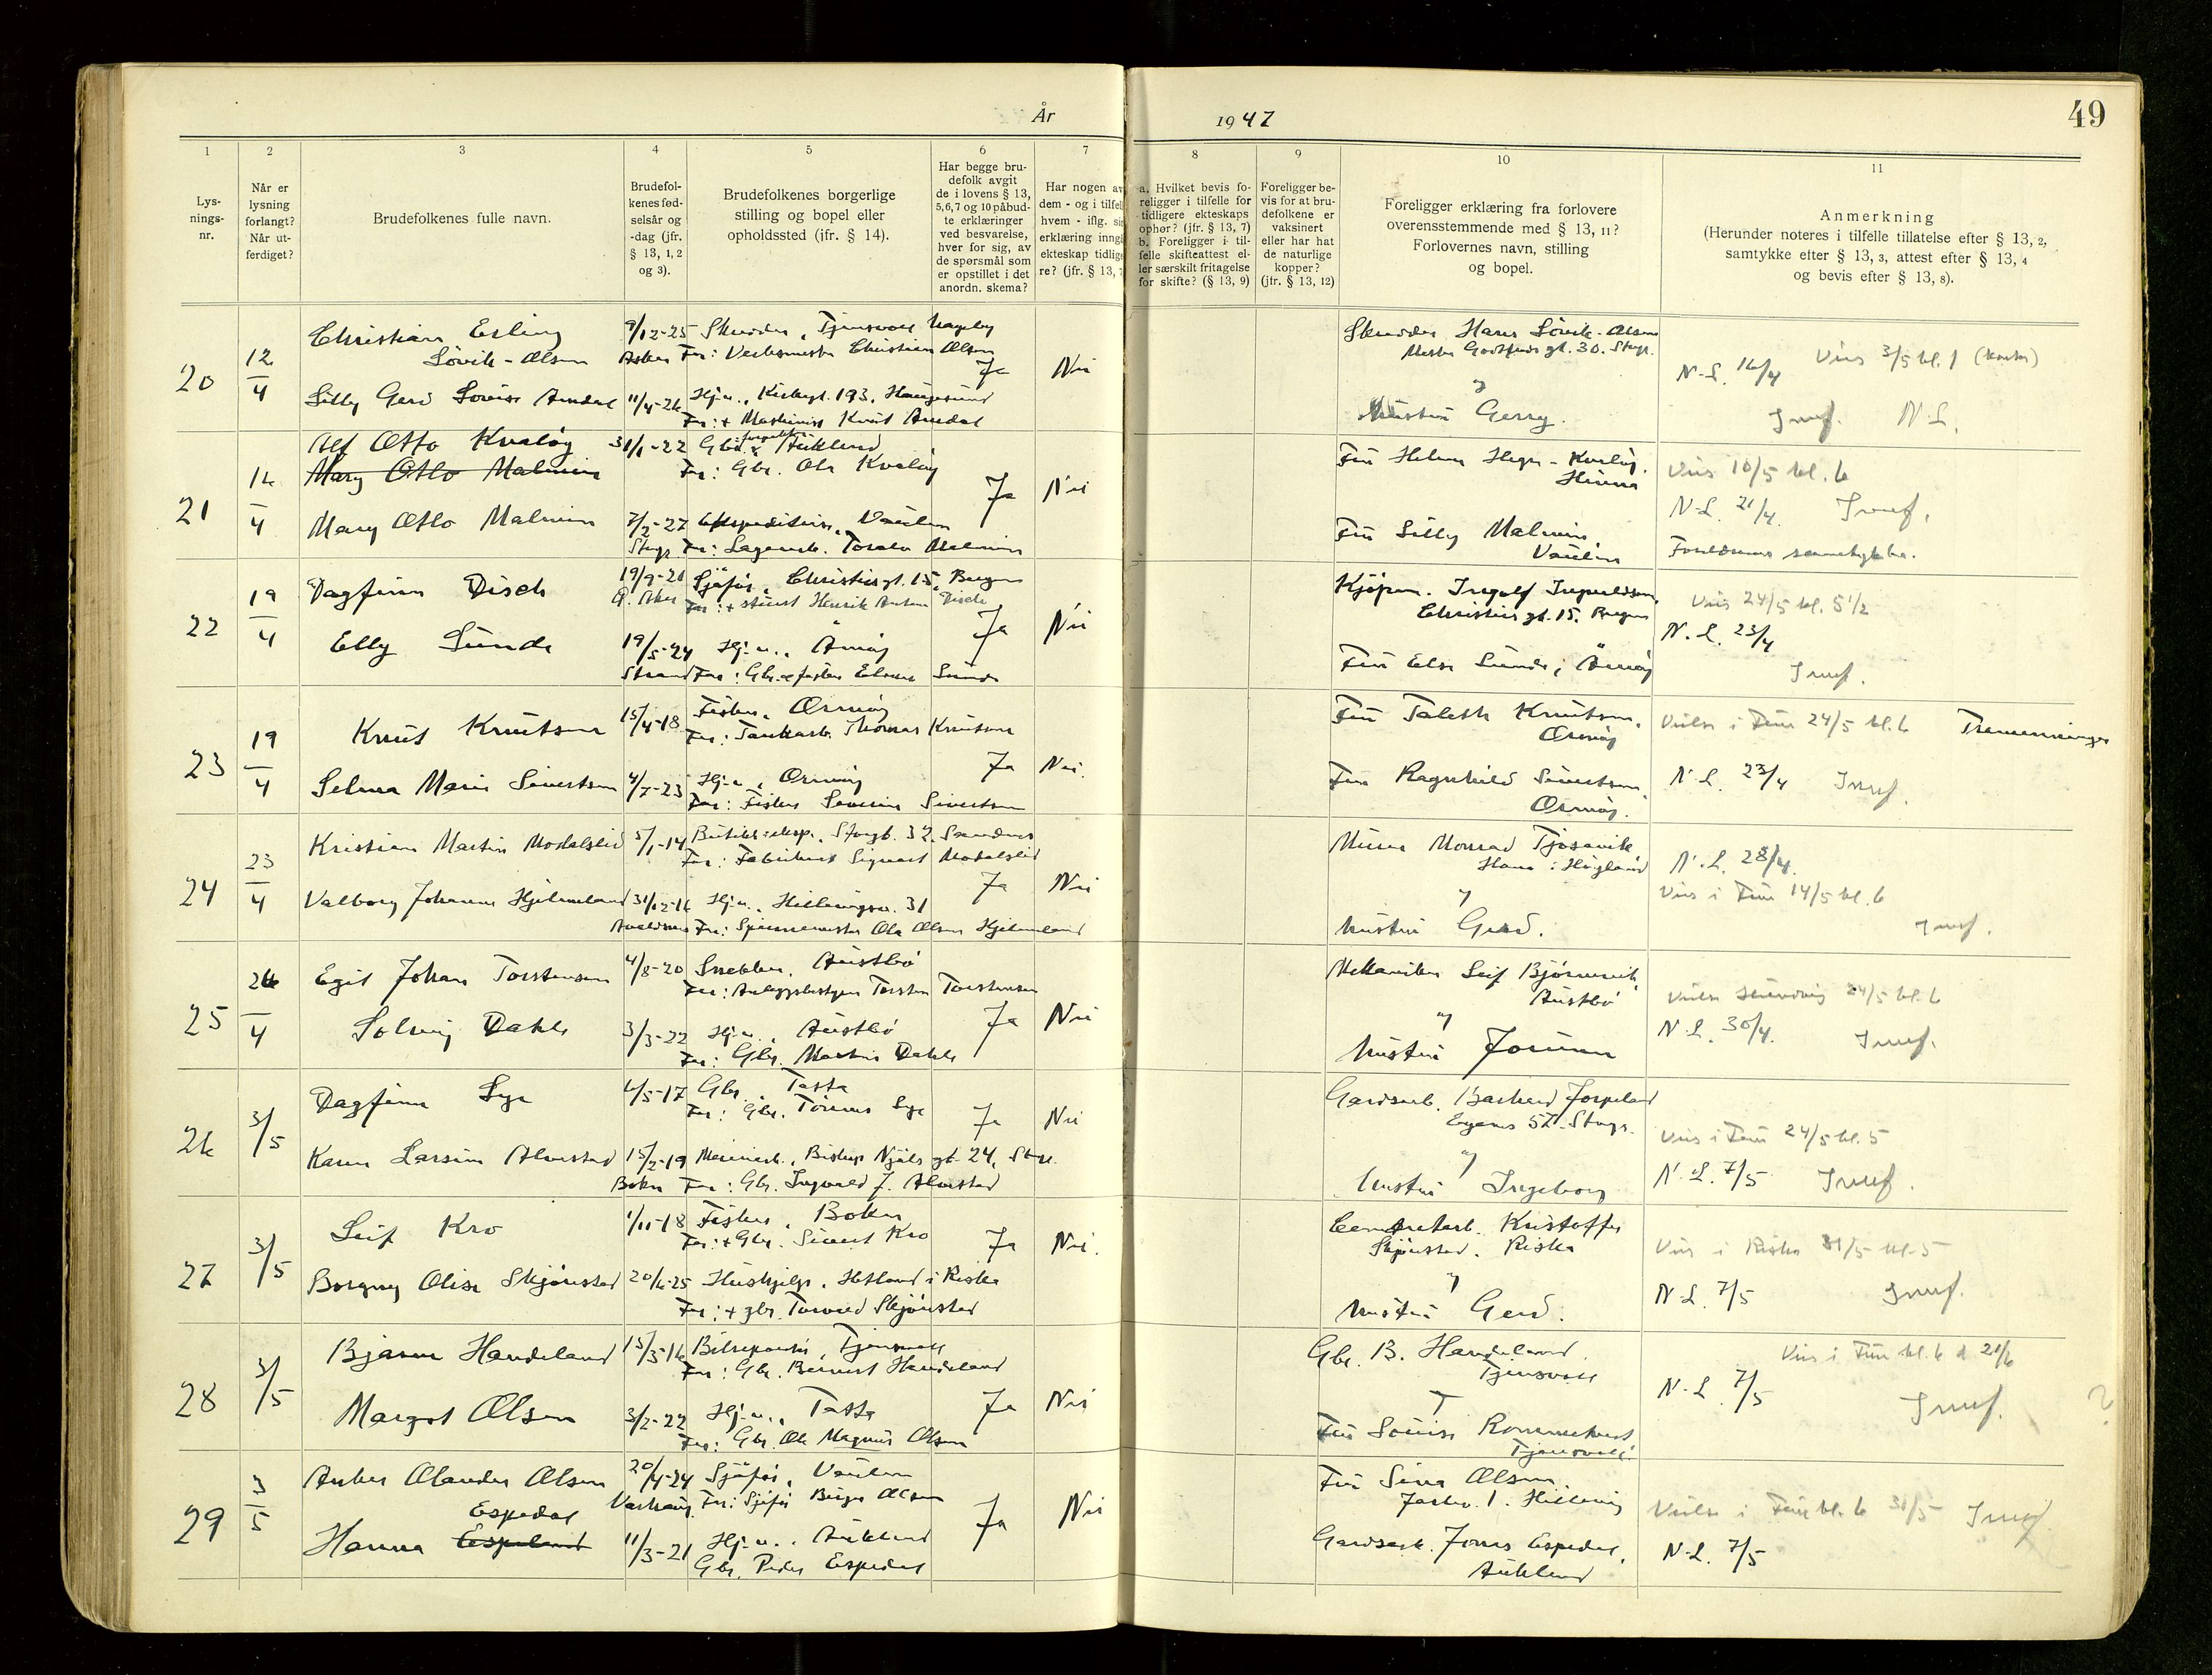 År 1947
49
1
2
3
4
5
6
7
8
9
10
11
Lys-
nings-
nr.
Når er
lysning
forlangt?
Når ut-
ferdiget?
Brudefolkenes fulle navn.
Brudefol-
kenes fød-
selsår og
-dag (jfr.
§ 13, 1, 2
og 3).
Brudefolkenes borgerlige
stilling og bopel eller
opholdssted (jfr. § 14).
Har begge bru-
defolk avgit
de i lovens § 13,
5,6,7 og 10 påbud-
te erklæringer
ved besvarelse,
hver for sig, av
de spørsmål som
er opstillet i det
anordn. skema?
Har nogen av
dem - og i tilfel
hvem - iflg. si
erklæring inngå
ekteskap tidlige
re? (jfr. § 13, 7
a. Hvilket bevis fo-
religger i tilfelle for
tidligere ekteskaps
ophør? (jfr. § 13, 7)
b. Foreligger i til-
felle skifteattest el-
ler særskilt fritagelse
for skifte? (§ 13, 9)
Foreligger be-
vis for at bru-
defolkene er
vaksinert
eller har hat
de naturlige
kopper?
(jfr. § 13, 12)
Foreligger erklæring fra forlovere
overensstemmende med § 13, 11?
Forlovernes navn, stilling
og bopel.
Anmerkning
(Herunder noteres i tilfelle tillatelse efter § 13, 2,
samtykke efter § 13, 3, attest efter § 13, 4
og bevis efter § 13, 8).
20
12/4
Christian Erling
Lövik-Olsen
Lilly Gerd Lovise Amdal
9/12-25
11/4-26
Far: Verksmester Christian Olsen
Hj.v., Kirkegt. 193, Haugesund
Far: + Maskinist Knut Amdal
Ja
Nei
Hans Lövik-Olsen
gt. 30. Stvgr.
Hustru Gerry.
N.L. 16/4
Vies 3/5 kl. 1
N.L.
21
16/4
Alf Otto Kvalöy
Mary Otto Malmin
Mary Otto Malmin
31/1-22
7/2-27
Stvgr.
Aukland
Far: Gbr. Ola Kvalöy
Ekspeditrise, Vaulen
Far: Lagerarb. Toralv Malmin
Ja
Nei
Fru Helene Hegre-Kvalöy.
Hinna
Fru Lilly Malmin
Vaulen
Vies 10/5 kl. 6
N.L. 21/4.
Foreldrenes samtykke.
22
19/4
Dagfinn Disch
Elly Sunde
19/9-21
Ö. Aker
19/5-24
Strand
Sjöför, Christiesgt. 15, Bergen
Far: + Henrik Anton Disch
Hj.v., Åmöy
Far: Gbr. og fisker Sunde
Ja
Nei
Kjöpm. Ingolf
Christies gt. 15. Bergen
Fru Else Sunde, Åmöy
Vies 24/5 kl. 5 1/2
N.L. 23/4
23
19/4
Knut Knutsen
Selma Marie Sivertsen
15/4-18
4/7-23
Fisker, Ormöy
Far: Tankarb. Thomas Knutsen
Hj.v., Ormöy
Far: Fisker Severin Sivertsen
Ja
Nei.
Fru Taleth Knutsen,
Ormöy
Fru Ragnhild Sivertsen,
Ormöy.
Vielse i Frue 24/5 kl. 6
Tremenninger
N.L. 23/4
24
23/4
Kristian Martin Modalslid
Valborg Johanne Hjelmeland
5/1-14
31/12-16
Butikkeksp., Storgt. 32, Sandnes
Far: Fabrikant Sigvart Modalslid
Hj.v., Hillevågsv. 31
Far: Spinnemester Ole Olsen Hjelmeland
Ja
Nei
Murer Monrad Tjosevik
Hana i Höyland
Hustru Gerd.
N.L. 28/4.
Vies i Frue 14/5 kl. 6
25
24/4
Egil Johan Torstensen
Solveig Dahle
4/8-20
3/3-22
Snekker, Austbö
Far: Anleggsbestyrer Torsten Torstensen
Hj.v., Austbö
Far: Gbr. Martin Dahle
Ja
Nei
Mekaniker Leif Björnevik,
Austbö
Hustru Jorunn
24/5 kl. 6
N.L. 30/4.
26
3/5
Dagfinn Lye
Karen Larsine Alvestad
6/5-17
15/2-19
Bokn
Gbr., Tasta
Far: Gbr. Tönnes Lye
Meieriarb., Biskop Njåls gt. 24, Stvgr.
Far: Gbr. Ingvald J. Alvestad
Ja
Nei
Gardsarb. Barhard Jorpeland
Eganes 57. Stvgr.
Hustru Ingeborg
Vies i Frue 24/5 kl. 5
N.L. 7/5
27
3/5
Leif Kro
Borgny Olise Skjörestad
1/11-18
20/6-25
Fisker, Bokn
Far: + Gbr. Sivert Kro
Hushjelp, Hetland i Riska
Far: + gbr. Torvald Skjörestad
Ja
Nei.
Cementarb. Kristoffer
Skjörestad. Riska
Hustru Gerd.
Vies i Riska 31/5 kl. 5
N.L. 7/5
28
3/5
Bjarne Haudeland
Margot Olsen
15/3-16
3/2-22
Bilreparatör, Tjensvoll
Far: Gbr. Berent Haudeland
Hj.v., Tasta
Far: Gbr. Ole Magnus Olsen
Ja
Nei
Gbr. B. Haudeland,
Tjensvoll
Fru Lovise
Tjensvoll.
Vies i Frue kl. 6 d 21/6
N.L. 7/5
?
29
3/5
Anker Olander Olsen
Espedal
Hanna Espeland
20/4-24
Varhaug
11/3-21
Sjöför, Vaulen
Far: Sjöför Birger Olsen
Hj.v., Aukland
Gbr. Peder Espedal
Ja
Nei
Fru Sina Olsen
1. Hillevåg
Gardsarb. Jonas Espedal,
Aukland
Vielse i Frue kl. 6 31/5
N.L. 7/5